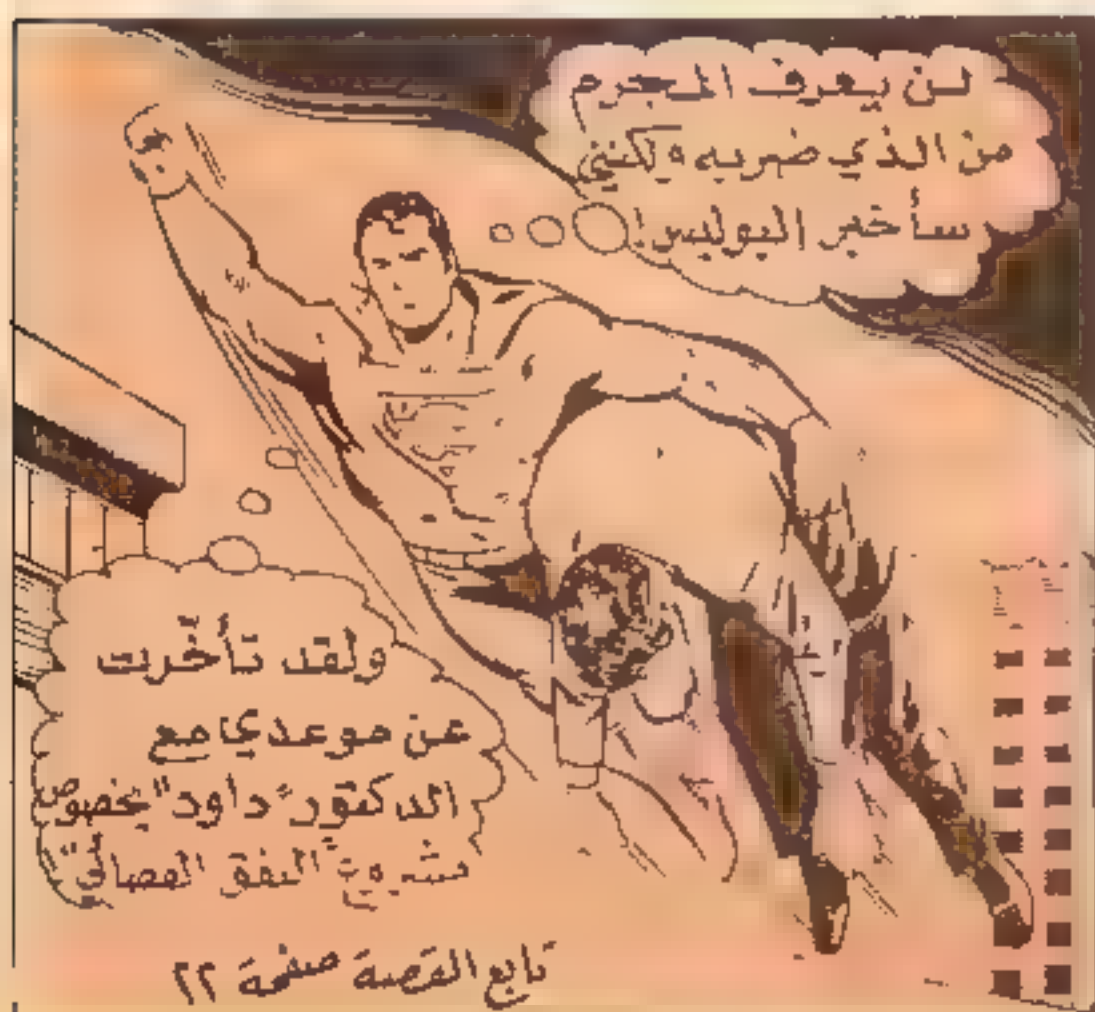 لن يعرف المجرم
من الذي ضربه ولكنني
سأخبر البوليس!
ولقد تأخّرت
عن موعدي مع
الدكتور "داود" بخصوص
مشروع "النفق الفضائي"
تابع القصة صفحة ٢٢